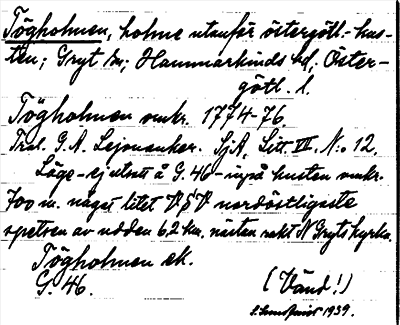 Tögholmen, holme utanför östergötl.-kus-
ten; Gryt sn; Hammarkinds hd, Öster-
götl. l.
Tögholmen omkr. 1774-76
Trol. G.A. Lejonanker. SjA, Litt VII. N:o 12.
Läge - ej utsatt å G. 46 - inpå kusten omkr.
700 m. något litet V S V nordöstligaste
spetsen av udden 62 km. nästan rakt N Gryts kyrka.
Tögholmen ek.
G. 46.
(Vänd!)
1939.